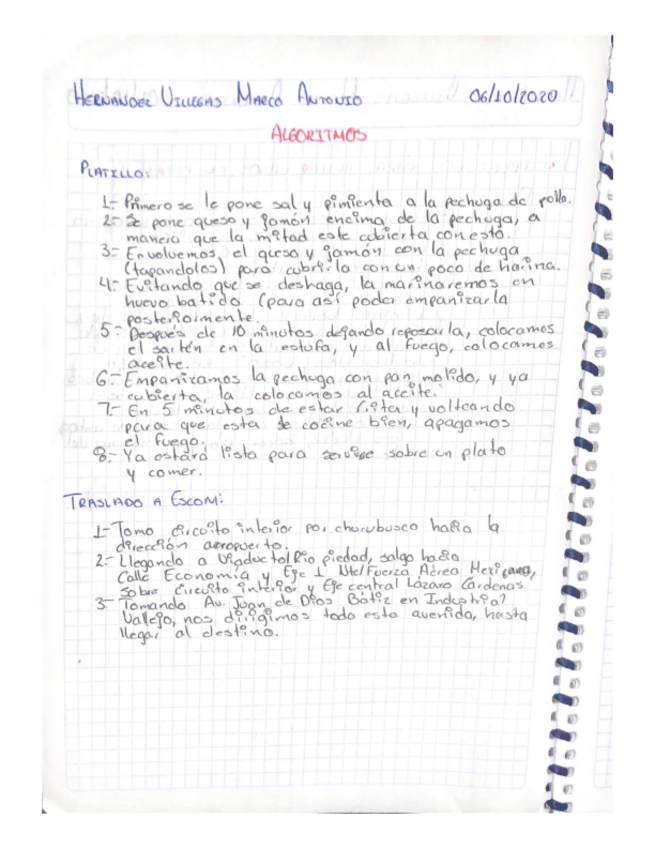 HERNANDEZ VILLEGAS MARCO ANTONIO 06/10/2020
ALGORITMOS
PLATILLO:
1.- Primero se le pone sal y pimienta a la pechuga de pollo.
2.- Se pone queso y jamón encima de la pechuga, a
manera que la mitad este cubierta con esto.
3.- Envolvemos, el queso y jamón con la pechuga
(tapandolos) para cubrirla con un poco de harina.
4.- Evitando que se deshaga, la marinaremos en
huevo batido (para así poder empanizarla
posteriormente.
5.- Después de 10 minutos dejando reposarla, colocamos
el sartén en la estufa, y al fuego, colocamos
aceite.
6.- Empanizamos la pechuga con pan molido, y ya
cubierta, la colocamos al aceite.
7.- En 5 minutos de estar frita y volteando
para que esta se cocine bien, apagamos
el fuego.
8.- Ya estará lista para servirse sobre un plato
y comer.
TRASLADO A ESCOM:
1.- Tomo circuito interior por churubusco hacia la
dirección aeropuerto.
2.- Llegando a Viaducto/Río piedad, salgo hacia
Calle Economía y Eje 1 Nte/Fuerza Aérea Mexicana,
sobre circuito interior y Eje central Lázaro Cárdenas.
3.- Tomando Av. Juan de Dios Bátiz en Industrial
Vallejo, nos dirigimos todo esta avenida, hasta
llegar al destino.